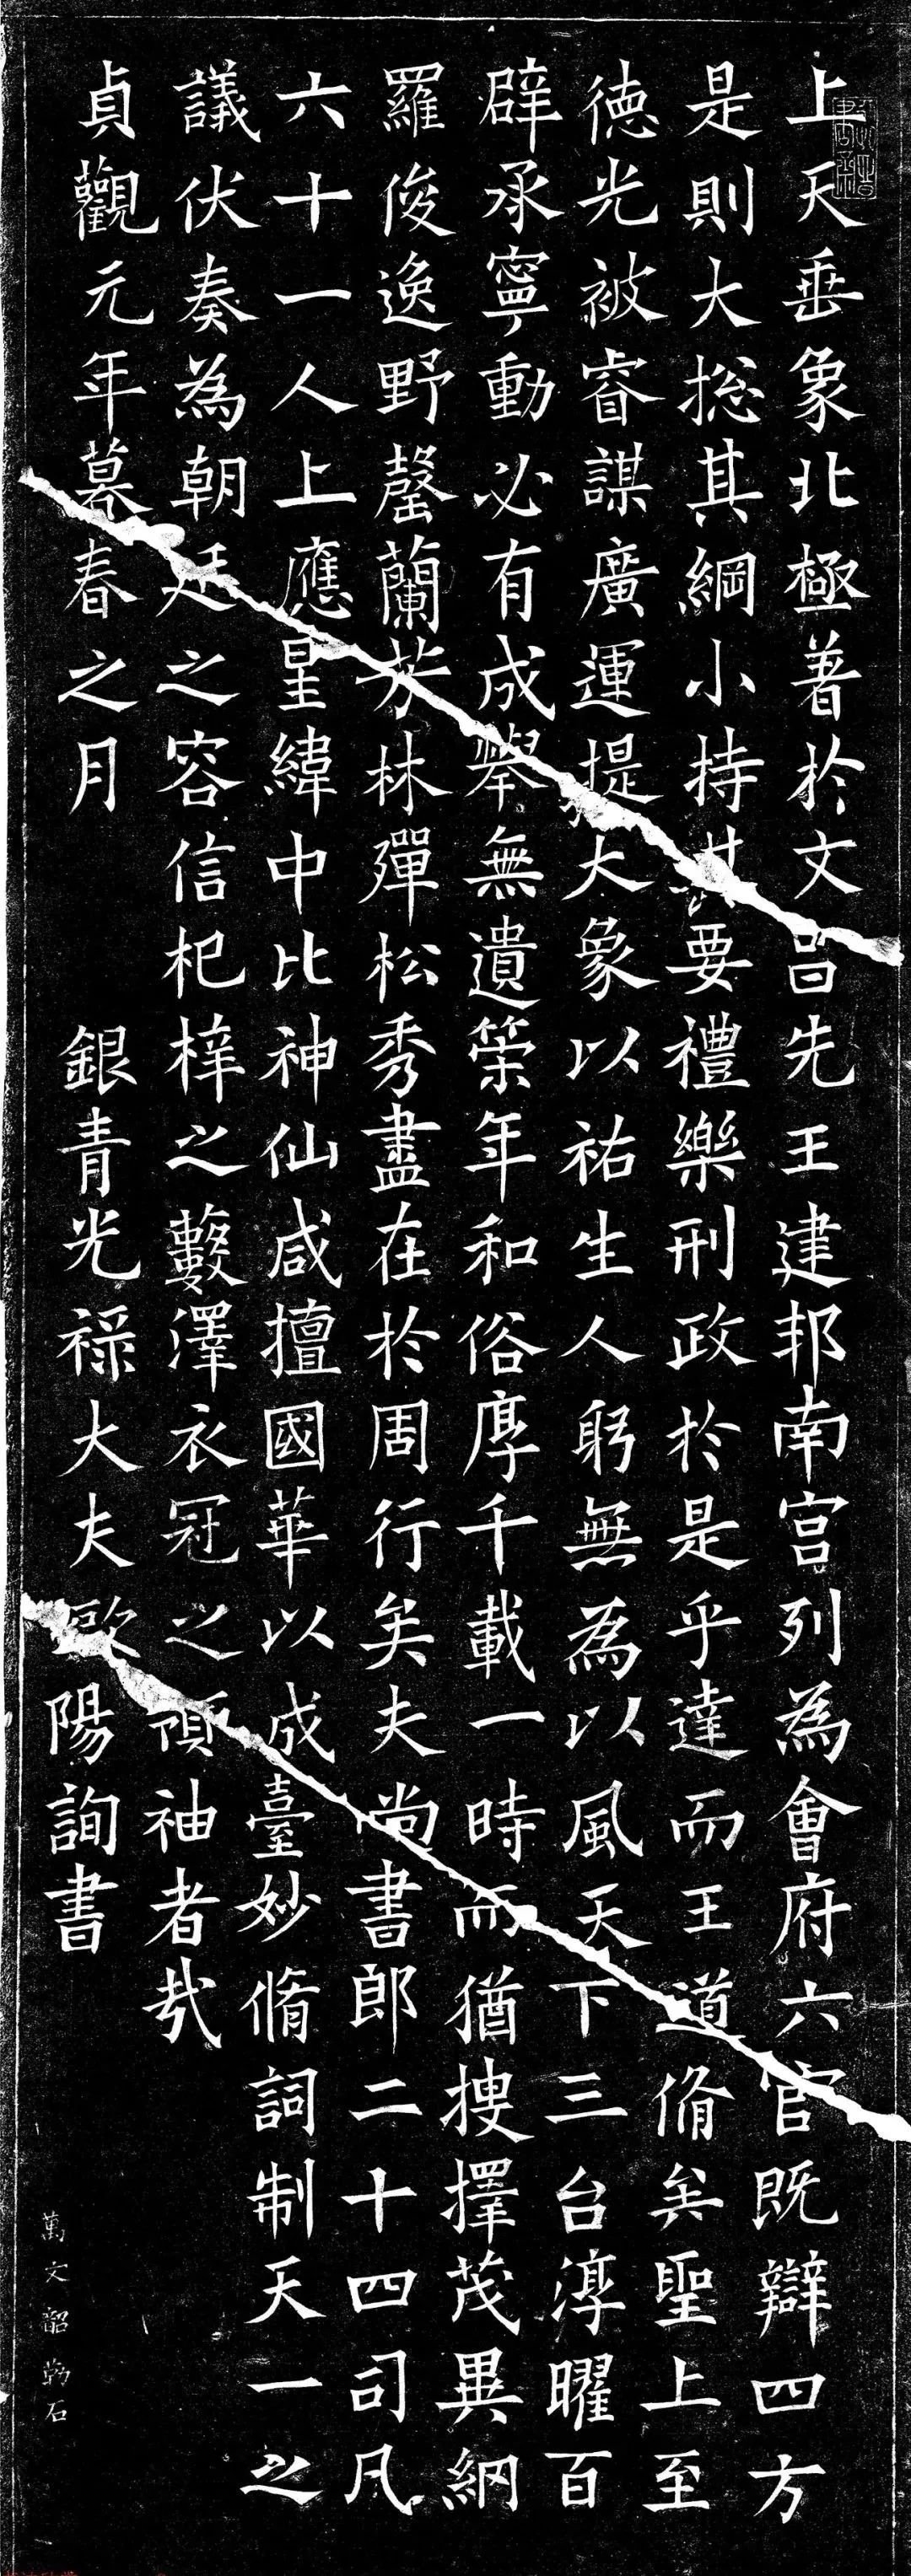 上天垂象北極著於文昌先王建邦南宮列為會府六官既辯四方
是則大揔其綱小持其要禮樂刑政於是乎達而王道脩矣聖上至
德光被睿謀廣運提大象以祐生人躬無為以風天下三台淳曜百
辟承寧動必有成舉無遺策年和俗厚千載一時而猶搜擇茂異網
羅俊逸野罄蘭芳林殫松秀盡在於周行矣夫尚書郎二十四司凡
六十一人上應星緯中比神仙咸擅國華以成臺妙脩詞制天一之
議伏奏為朝廷之容信杞梓之藪澤衣冠之領袖者哉
貞觀元年暮春之月 銀青光祿大夫歐陽詢書
萬文韶勒石